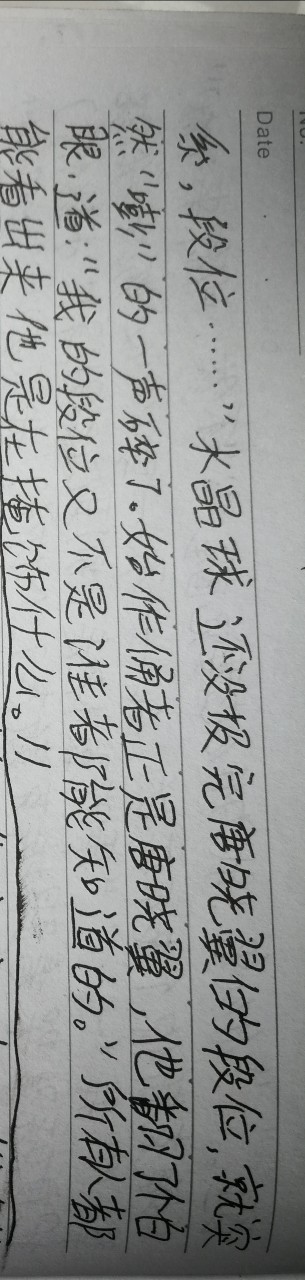 No.
Date
系，段位……”水晶球还没报完唐晓翼的段位，就突
然“嘭”的一声碎了。始作俑者正是唐晓翼，他翻了个白
眼，道：“我的段位又不是谁都能知道的。”所有人都
能看出来他是在掩饰什么。